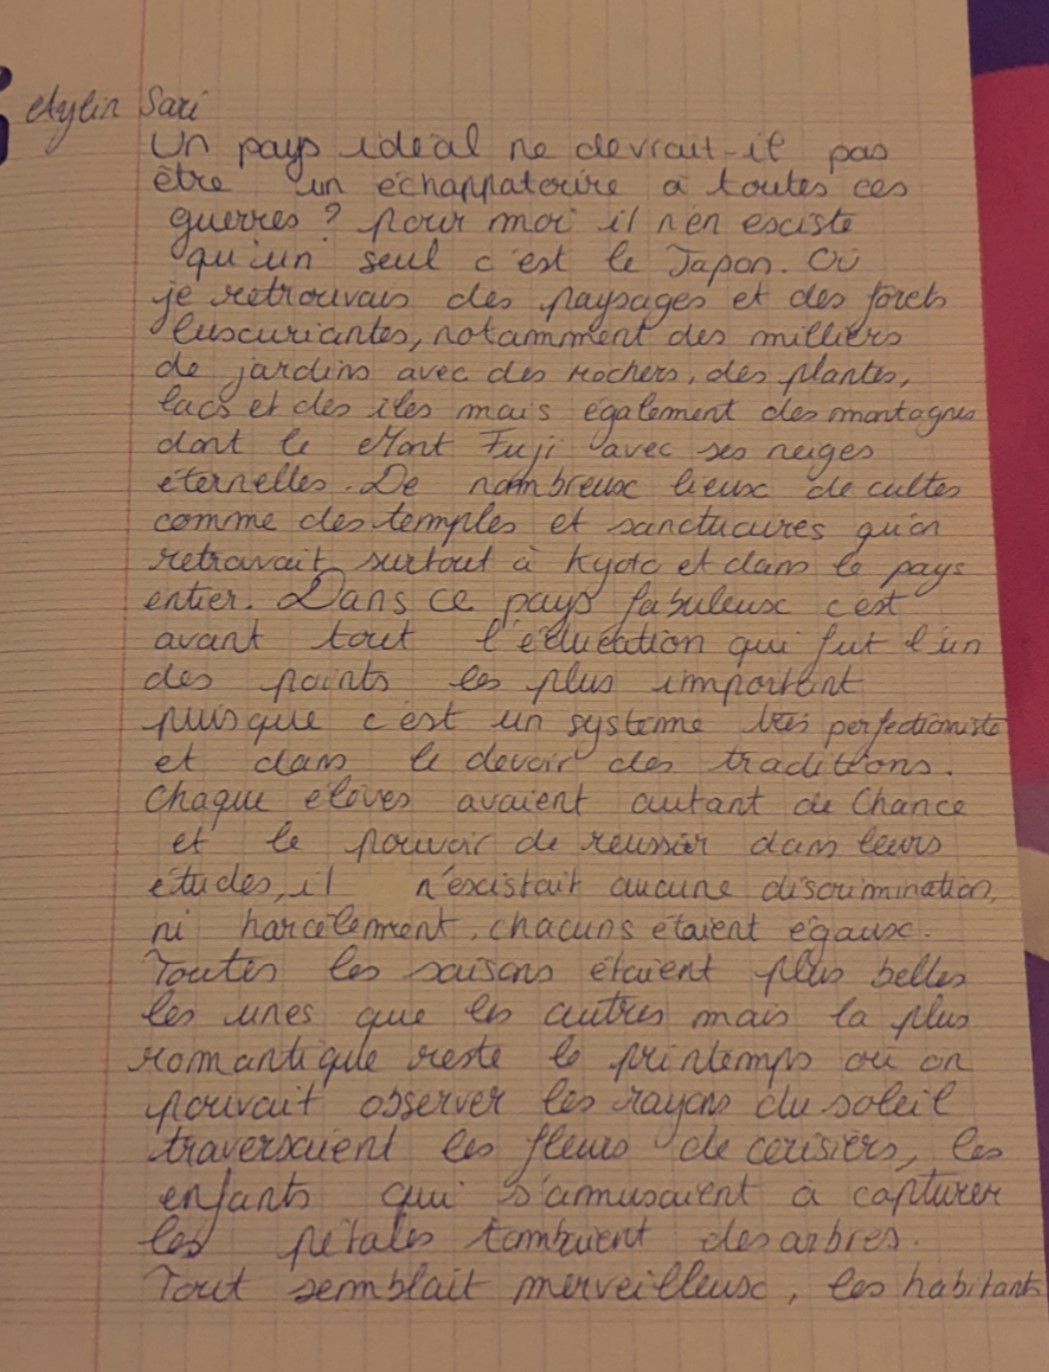 Aylin Sari
Un pays idéal ne devrait-il pas
être un échappatoire à toutes ces
guerres ? pour moi il n'en esciste
qu'un seul c'est le Japon. Où
je retrouvais des paysages et des forêts
luscuriantes, notamment des milliers
de jardins avec des rochers, des plantes,
lacs et des îles mais également des montagnes
dont le Mont Fuji avec ses neiges
éternelles. De nombreux lieux de cultes
comme des temples et sanctuaires qu'on
retrouvait surtout à Kyoto et dans le pays
entier. Dans ce pays fabuleux c'est
avant tout l'éducation qui fut l'un
des points les plus important
puisque c'est un système très perfectioniste
et dans le devoir des traditions.
Chaque élèves avaient autant de Chance
et le pouvoir de reussir dans leurs
études, il n'escistait aucune discrimination,
ni harcèlement, chacuns étaient égaux.
Toutes les saisons étaient plus belles
les unes que les autres mais la plus
romantique reste le printemps où on
pouvait observer les rayons du soleil
traversaient les fleurs de cerisiers, les
enfants qui s'amusaient à capturer
les pétales tombaient des arbres.
Tout semblait merveilleux, les habitants